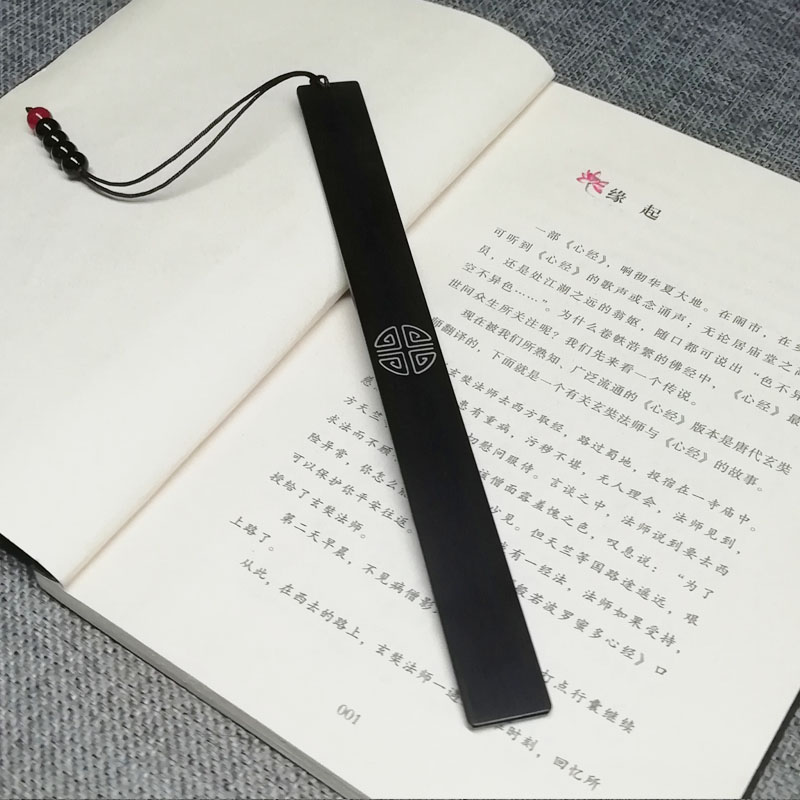 缘 起
一部《心经》，响彻华夏大地。在闹市，在
可听到《心经》的歌声或念诵声；无论居庙堂之
员，还是处江湖之远的翁妪，随口都可说出“色不异
空不异色……”。为什么卷帙浩繁的佛经中，《心经》最
世间众生所关注呢？我们先来看一个传说。
现在被我们所熟知、广泛流通的《心经》版本是唐代玄奘
师翻译的，下面就是一个有关玄奘法师与《心经》的故事。
玄奘法师去西方取经，路过蜀地，投宿在一寺庙中。
患有重病，污秽不堪，无人理会，法师见到，
方天竺 切慰问服侍。言谈之中，法师说到要去西
求法而不顾 该僧面露羞愧之色，叹息说：“为了
险异常，你怎么 少见。但天竺等国路途遥远，艰
可以保护你平安往返。 有一经法，法师如果受持，
授给了玄奘法师。 般若波罗蜜多心经》口
第二天早晨，不见病僧影 打点行囊继续
上路了。
从此，在西去的路上，玄奘法师一 时刻，回忆所
001